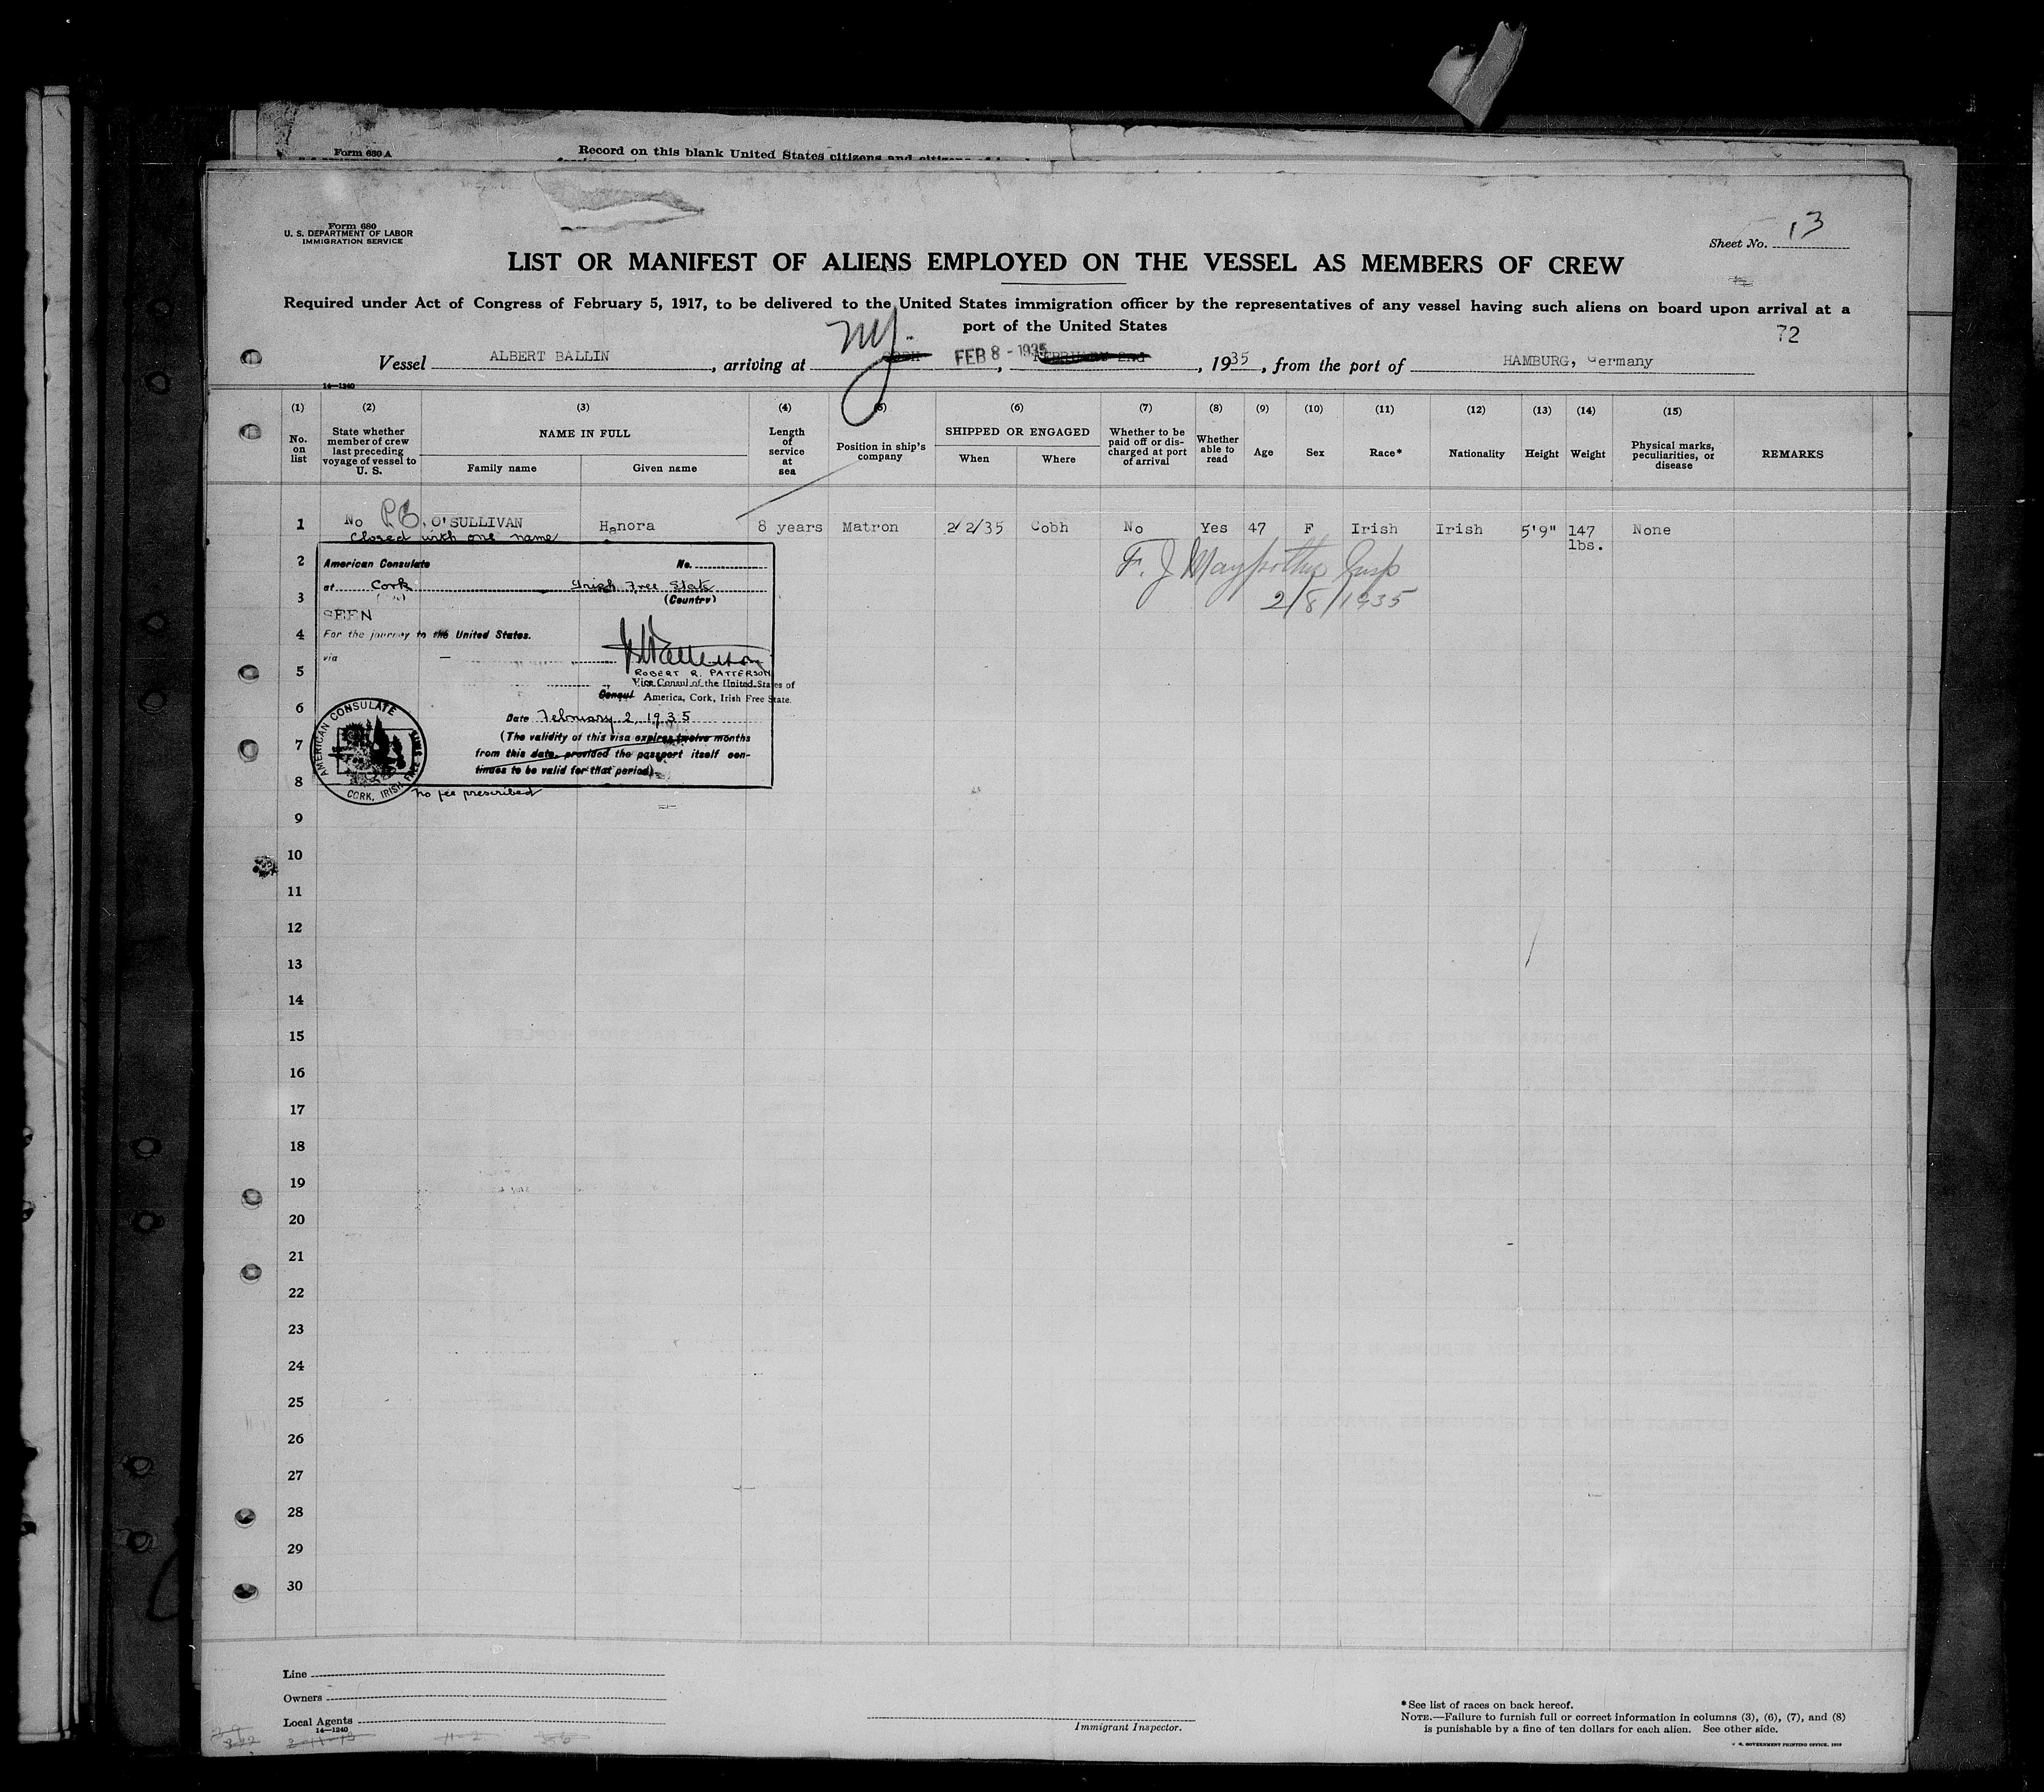 Form 680 A
Record on this blank United States citizens and citizens of
Form 680
U. S. DEPARTMENT OF LABOR
IMMIGRATION SERVICE
Sheet No. 13
LIST OR MANIFEST OF ALIENS EMPLOYED ON THE VESSEL AS MEMBERS OF CREW
Required under Act of Congress of February 5, 1917, to be delivered to the United States immigration officer by the representatives of any vessel having such aliens on board upon arrival at a
port of the United States
72
Vessel ALBERT BALLIN, arriving at NY. COBH FEB 8 - 1935, FEBRUARY 2nd, 1935, from the port of HAMBURG, Germany
14—1240
(1) (2) (3) (4) (5) (6) (7) (8) (9) (10) (11) (12) (13) (14) (15)
No. on list
State whether member of crew last preceding voyage of vessel to U. S.
NAME IN FULL
Family name
Given name
Length of service at sea
Position in ship's company
SHIPPED OR ENGAGED
When
Where
Whether to be paid off or discharged at port of arrival
Whether able to read
Age
Sex
Race*
Nationality
Height
Weight
Physical marks, peculiarities, or disease
REMARKS
1 No O'SULLIVAN Hanora 8 years Matron 2/2/35 Cobh No Yes 47 F Irish Irish 5'9" 147 lbs. None
Closed with one name
F. J
2/8/1935
American Consulate No.
at Cork Irish Free State
(Country)
SEEN
For the journey to the United States.
via
ROBERT R. PATTERSON
Vice Consul of the United States of
Consul America, Cork, Irish Free State.
Date February 2, 1935
(The validity of this visa expires twelve months
from this date, provided the passport itself con-
tinues to be valid for that period).
AMERICAN CONSULATE
CORK, IRISH FREE STATE
No fee prescribed
2
3
4
5
6
7
8
9
10
11
12
13
14
15
16
17
18
19
20
21
22
23
24
25
26
27
28
29
30
Line
Owners
Local Agents
14—1240
Immigrant Inspector.
*See list of races on back hereof.
NOTE.—Failure to furnish full or correct information in columns (3), (6), (7), and (8)
is punishable by a fine of ten dollars for each alien. See other side.
GOVERNMENT PRINTING OFFICE